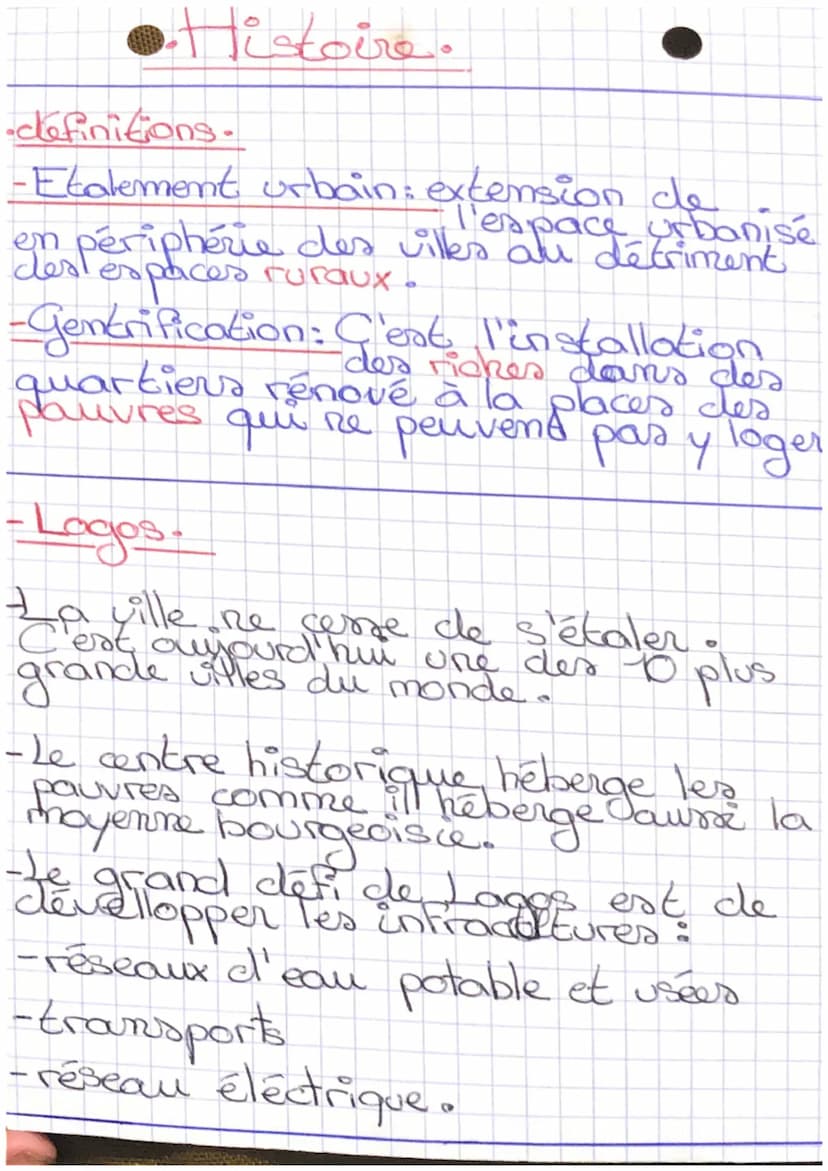 .Histoire.
.définitions.
-Etalement urbain: extension de
l'espace urbanisé
en périphérie des villes au détriment
des espaces ruraux.
-Gentrification: C'est l'installation
des riches dans des
quartiers rénové à la places des
pauvres qui ne peuvent pas y loger
-Lagos.
-La ville ne cesse de s'étaler.
C'est aujourd'hui une des 10 plus
grande villes du monde.
-Le centre historique héberge les
pauvres comme ill héberge aussi la
moyenne bourgeoisie.
-Le grand défi de Lagos est de
dévellopper les
-réseaux d'eau potable et usées
-transports
-réseau éléctrique.